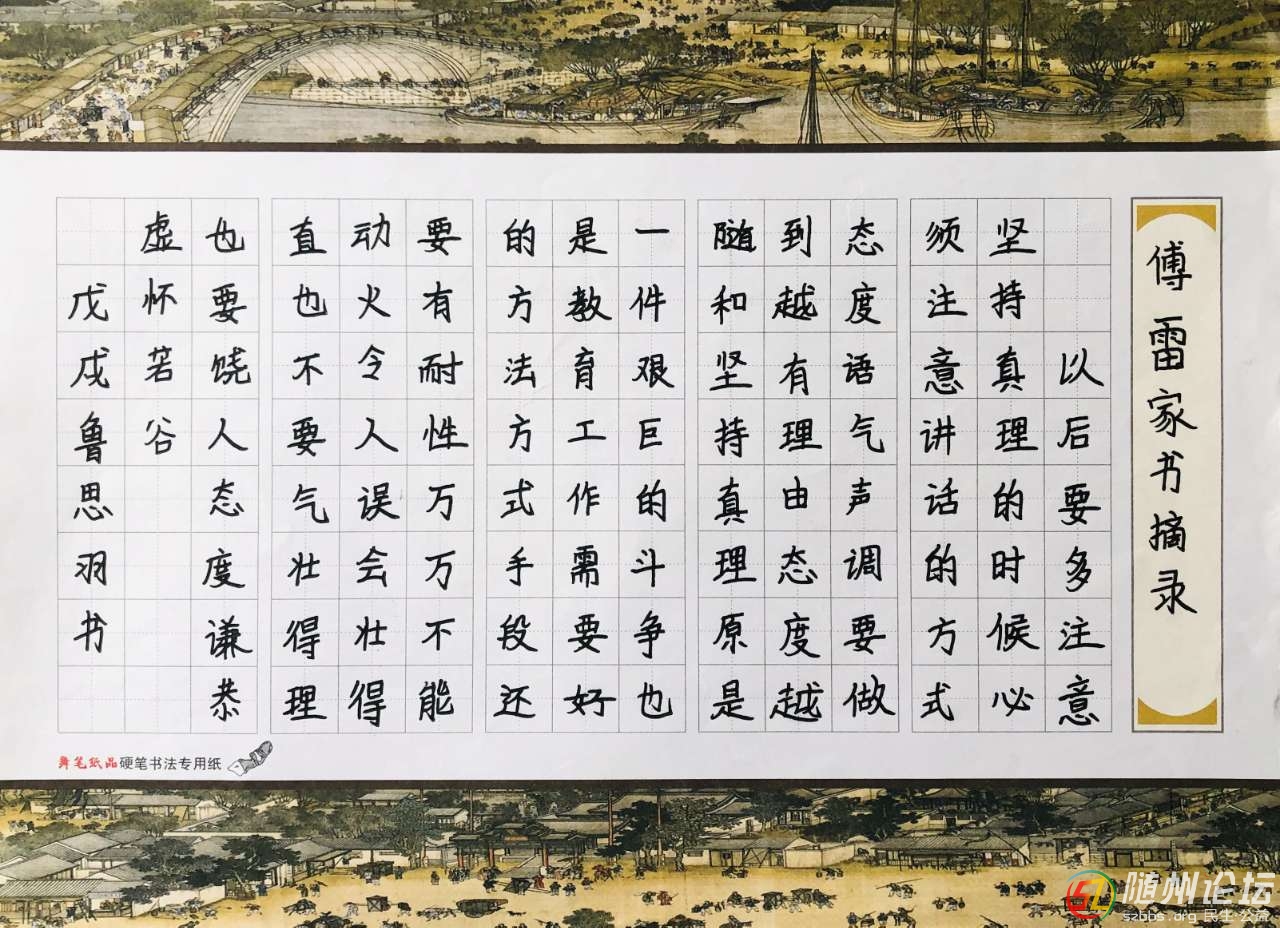 傅雷家书摘录
以后要多注意
坚持真理的时候必
须注意讲话的方式
态度语气声调要做
到越有理由态度越
随和坚持真理原是
一件艰巨的斗争也
是教育工作需要好
的方法方式手段还
要有耐性万万不能
动火令人误会壮得
直也不要气壮得理
也要饶人态度谦恭
虚怀若谷
戊戌鲁思羽书
笔纸品硬笔书法专用纸
随州论坛
szbbs.org 民生·公益